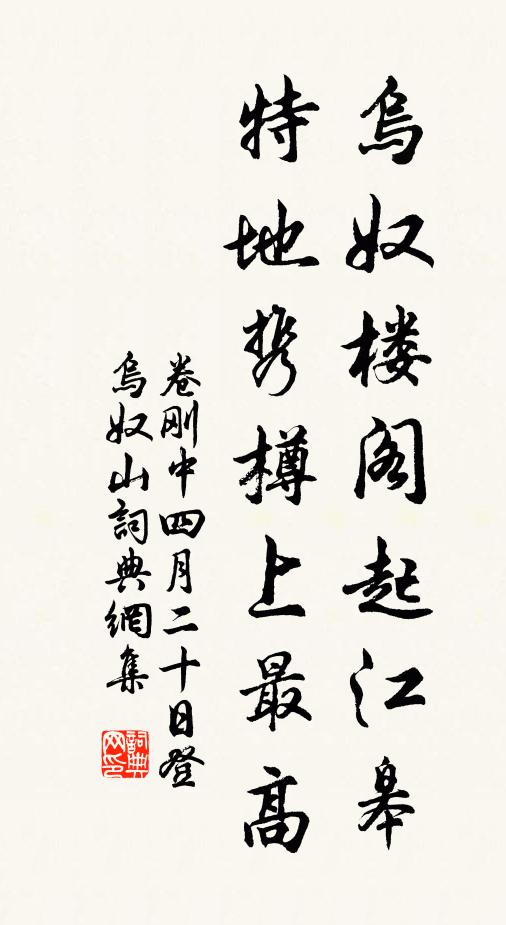 烏奴楼阁起江皋
特地携樽上最高
卷刚中四月二十日登
烏奴山詞典網集
詞典网印